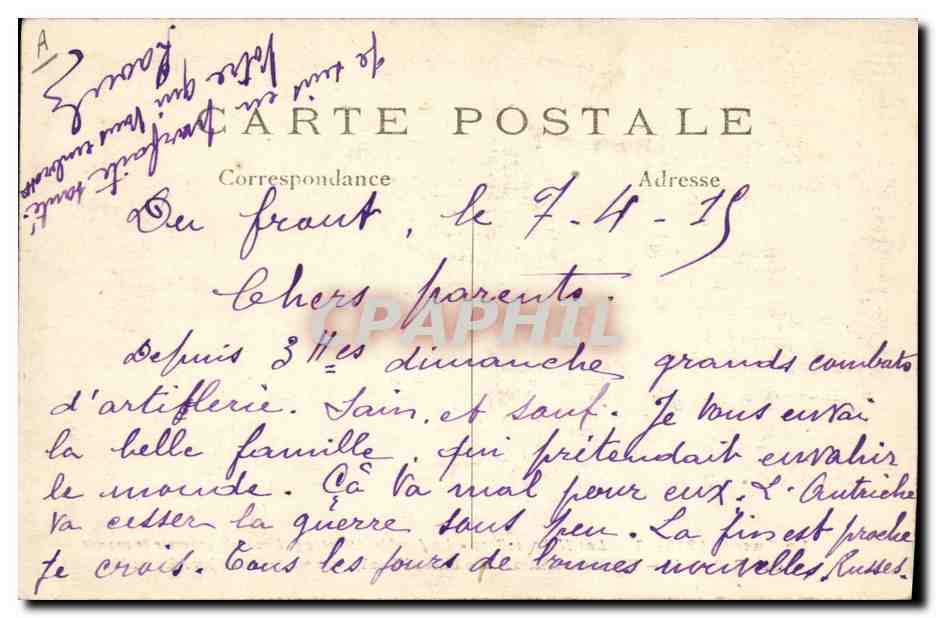 A
CARTE POSTALE
Correspondance
Adresse
Du front, le 7-4-15
Chers parents.
Depuis 3 Hres dimanche grands combats
d'artillerie. Sain et sauf. Je vous envoi
la belle famille, qui prétendait envahir
le monde. Çà va mal pour eux. L'Autriche
va cesser la guerre sous peu. La fin est proche
je crois. Tous les jours de bonnes nouvelles Russes.
Je suis en parfaite santé.
Votre qui vous embrasse
Raoul
CPAPHIL